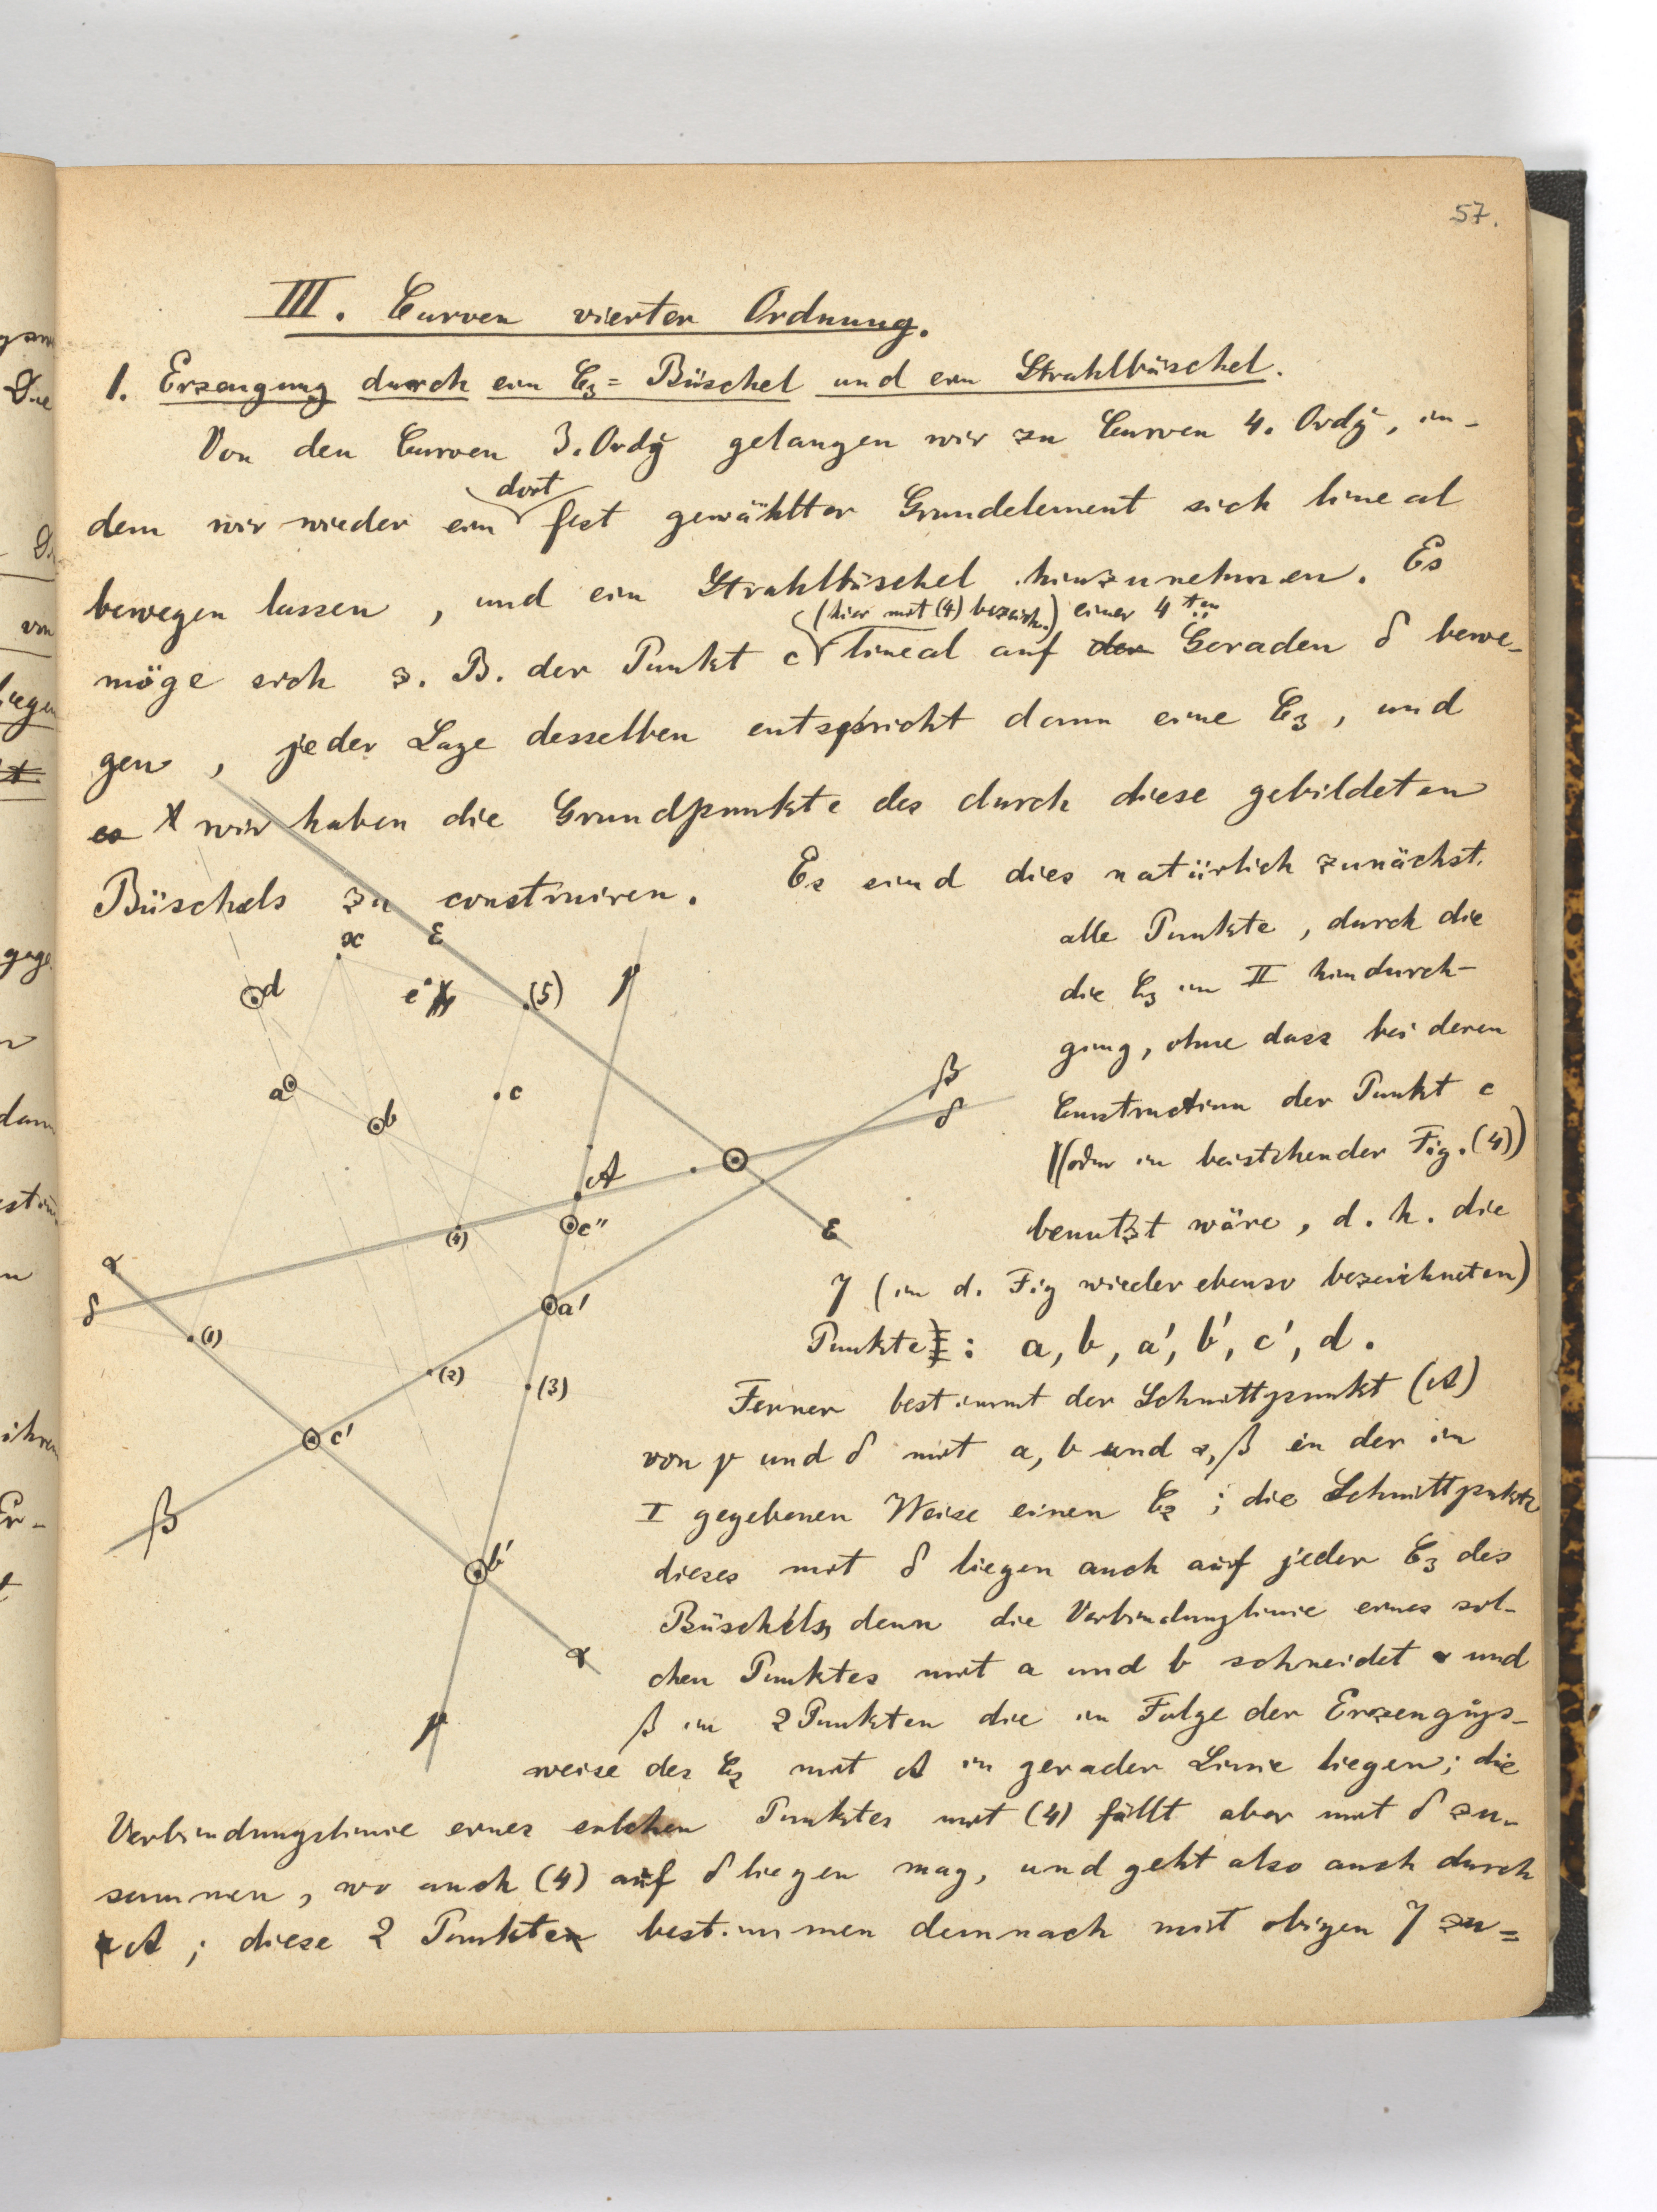 57.
III. Curven vierter Ordnung.
1. Erzeugung durch ein C₃= Büschel und ein Strahlbüschel.
Von den Curven 3. Ordg gelangen wir zu Curven 4. Ordg, in-
dort
dem wir wieder ein fest gewählter Grundelement sich lineal
bewegen lassen, und ein Strahlbüschel hinzunehmen. Es
(hier mit (4) bezeich.) einer 4ten
möge sich z. B. der Punkt c lineal auf der Geraden δ bewe-
gen, jeder Lage desselben entspricht dann eine C₃, und
es wir haben die Grundpunkte des durch diese gebildeten
Büschels zu construiren. Es sind dies natürlich zunächst
alle Punkte, durch die
die C₃ in II hindurch-
ging, ohne dass bei deren
Construction der Punkt c
(oder in beistehender Fig. (4))
benutzt wäre, d. h. die
7 (in d. Fig wieder ebenso bezeichneten)
Punkte: a, b, a', b', c', d.
Ferner bestimmt der Schnittpunkt (A)
von γ und δ mit a, b und α, β in der in
I gegebenen Weise einen C₂; die Schnittpnkte
dieses mit δ liegen auch auf jeder C₃ des
Büschels, denn die Verbindunglinie eines sol-
chen Punktes mit a und b schneidet α und
β in 2 Punkten die in Folge der Erzeungs-
weise des C₂ mit A in gerader Linie liegen; die
Verbindungslinie eines solchen Punktes mit (4) fällt aber mit δ zu-
sammen, wo auch (4) auf δ liegen mag, und geht also auch durch
A; diese 2 Punkte bestimmen demnach mit obigen 7 zu=
x
ε
d
e
(5)
γ
a
b
c
β
δ
A
c''
(4)
ε
α
δ
a'
(1)
(2)
(3)
c'
β
b'
α
γ